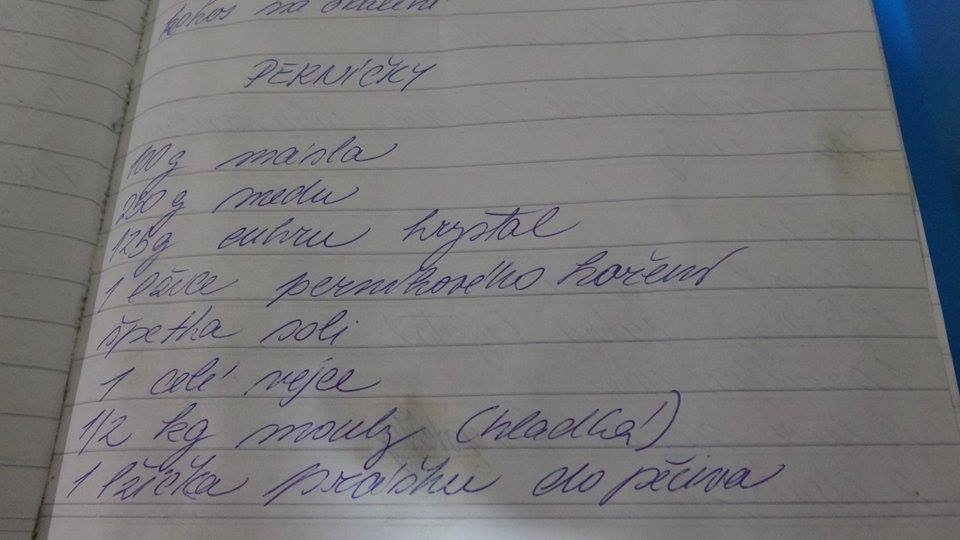 kokos na obalení
PERNÍČKY
100g másla
250g medu
125g cukru krystal
1 lžíce perníkového koření
špetka soli
1 celé vejce
1/2 kg mouky (hladká)
1 lžička prášku do pečiva